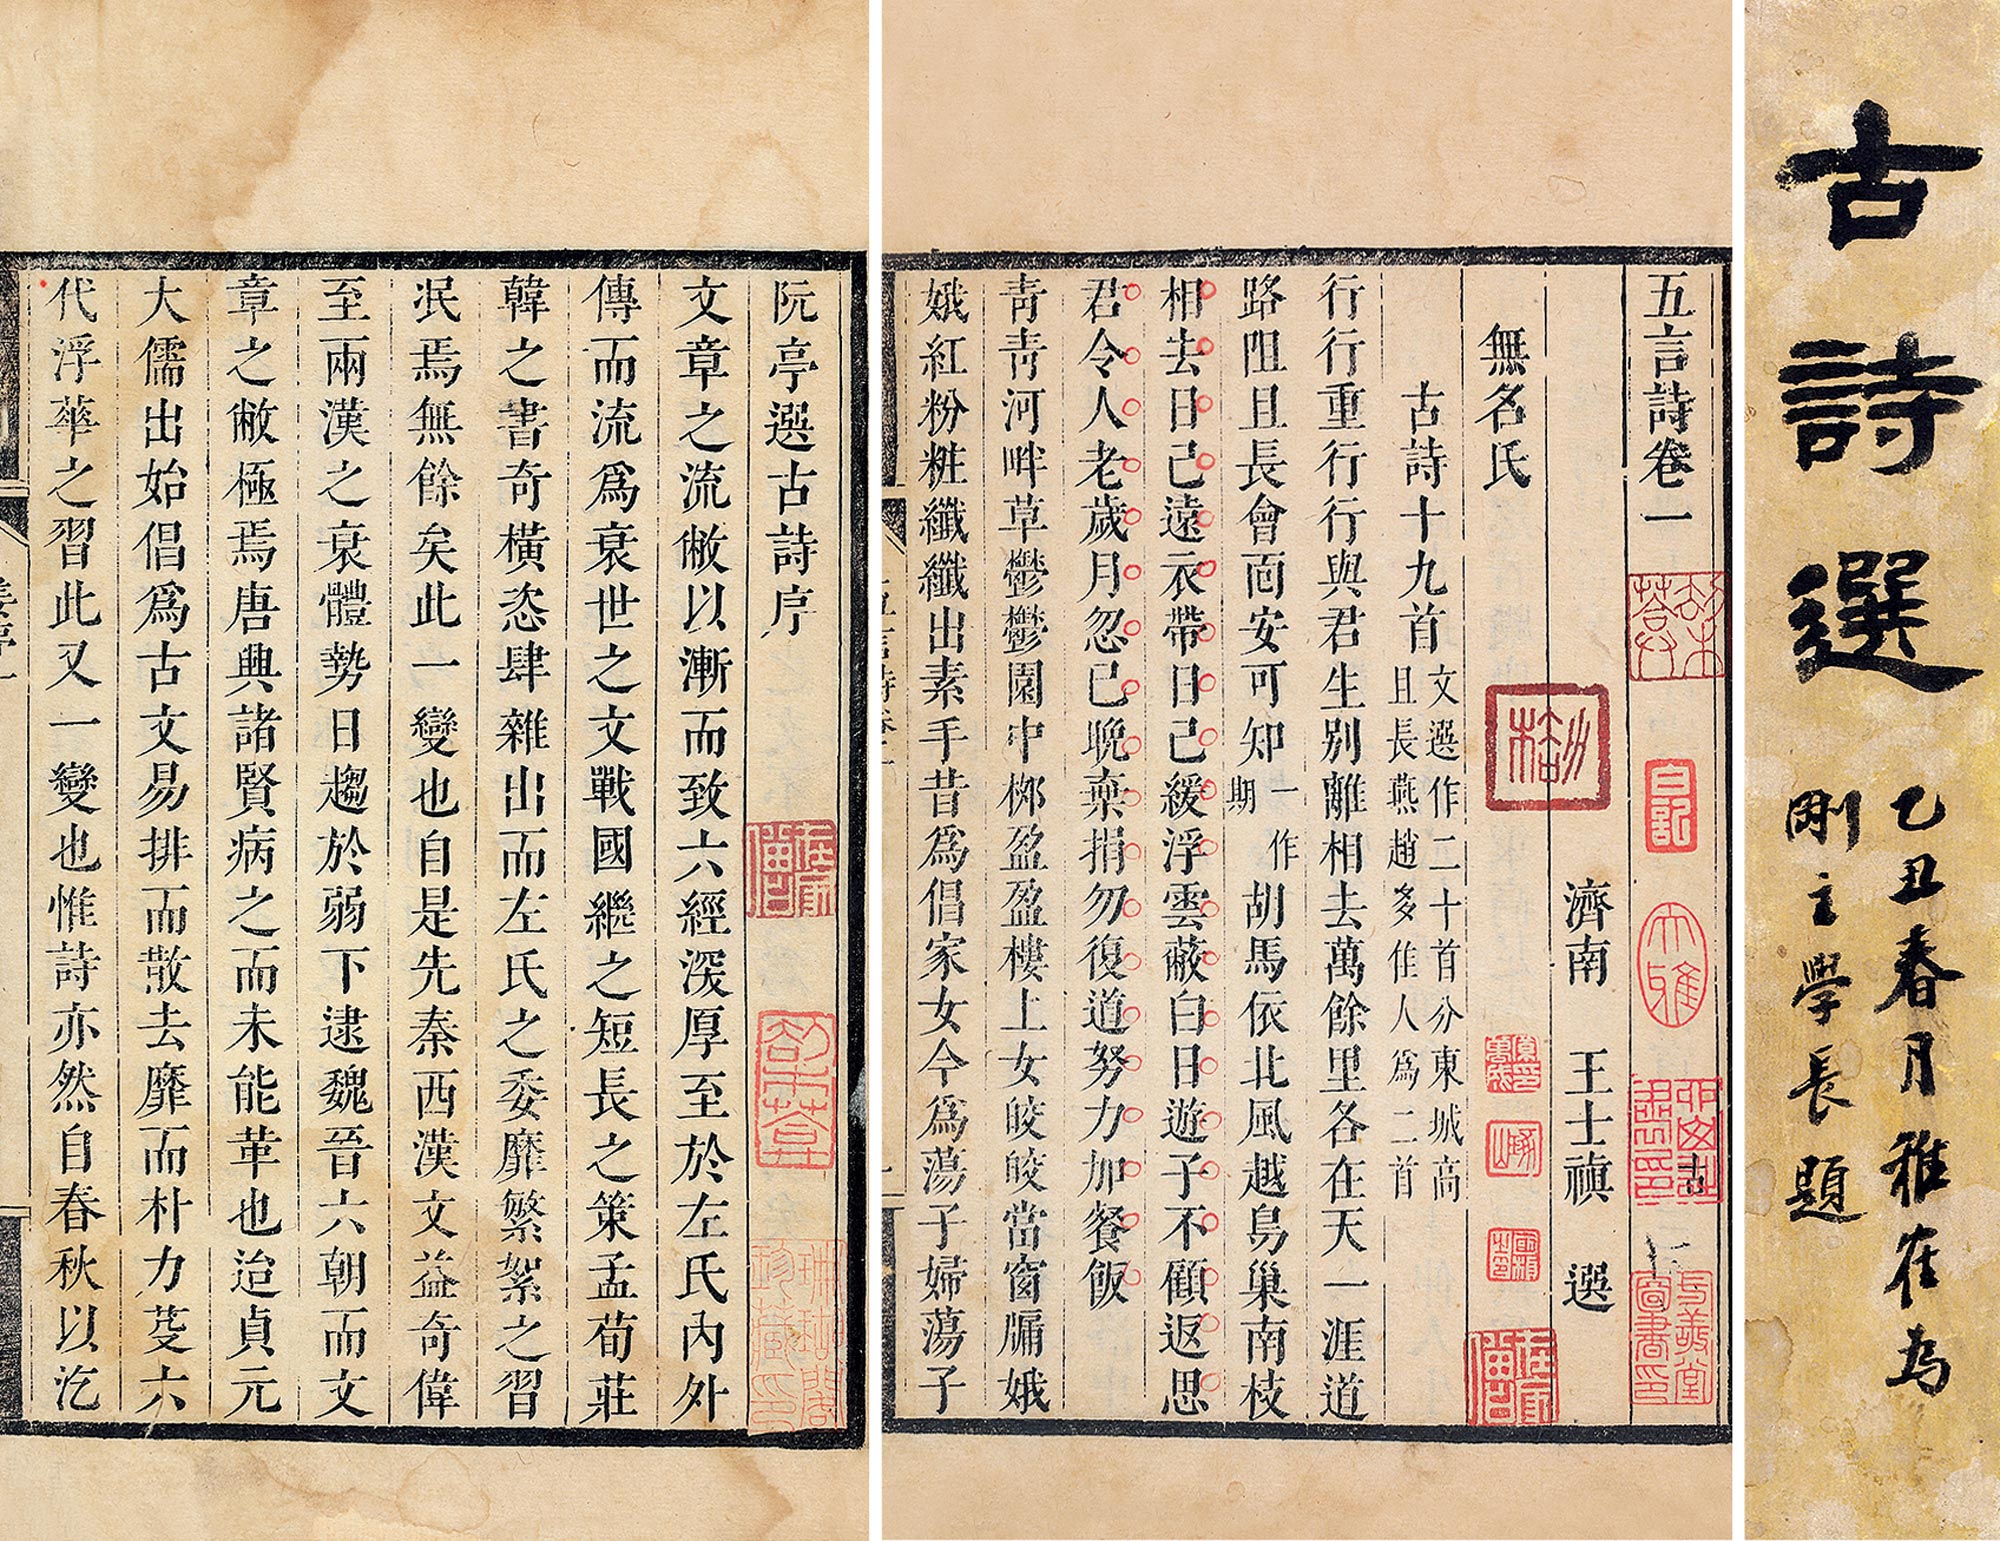 古詩選
乙丑春月雅在為
剛主學長題
五言詩卷一
濟南 王士禛 選
無名氏
古詩十九首 文選作二十首分東城高
且長燕趙多佳人為二首
行行重行行與君生別離相去萬餘里各在天一涯道
路阻且長會面安可知 一作期 胡馬依北風越鳥巢南枝
相去日已遠衣帶日已緩浮雲蔽白日遊子不顧返思
君令人老歲月忽已晚棄捐勿復道努力加餐飯
青青河畔草鬱鬱園中柳盈盈樓上女皎皎當窗牖娥
娥紅粉粧纖纖出素手昔為倡家女今為蕩子婦蕩子
五言詩卷一
一
阮亭選古詩序
文章之流敝以漸而致六經深厚至於左氏內外
傳而流為衰世之文戰國繼之短長之策孟荀莊
韓之書奇橫恣肆雜出而左氏之委靡繁絮之習
泯焉無餘矣此一變也自是先秦西漢文益奇偉
至兩漢之衰體勢日趨於弱下逮魏晉六朝而文
章之敝極焉唐興諸賢病之而未能革也迨貞元
大儒出始倡為古文易排而散去靡而朴力芟六
代浮華之習此又一變也惟詩亦然自春秋以迄